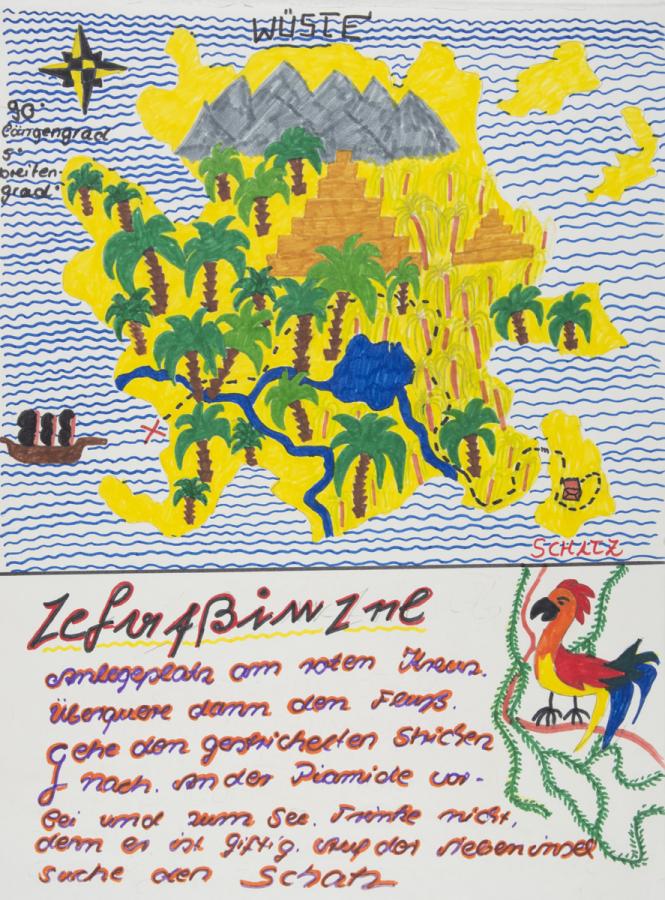 WÜSTE
90°
Längengrad
5°
breiten-
grad°
SCHATZ
Anlegeplatz am roten Kreuz.
Überquere dann den Fluß.
Gehe den gestrichelten Strichen
nach. An der Piamide vor-
bei und zum See. Trinke nicht,
denn er ist giftig. Auf der Nebeninsel
suche den Schatz